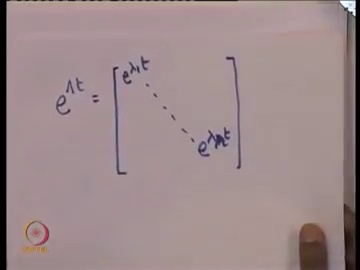 e^Λt = [ e^λ₁t ⋱ e^λₙt ]